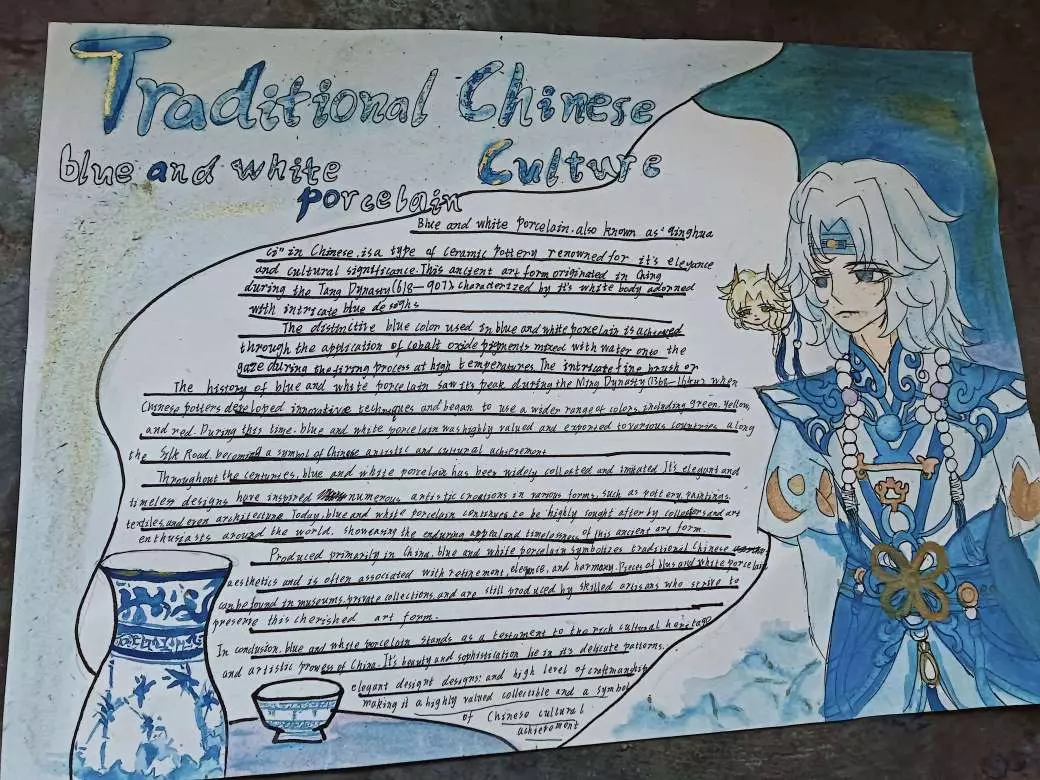 Traditional Chinese
Culture
blue and white
porcelain
Blue and white porcelain, also known as "qinghua
ci" in Chinese, is a type of ceramic pottery renowned for it's elegance
and cultural significance. This ancient art form originated in China
during the Tang Dynasty (618-907), characterized by it's white body adorned
with intricate blue designs
The distinctive blue color used in blue and white porcelain is achieved
through the application of cobalt oxide pigments mixed with water onto the
gaze during the firing process at high temperatures. The intricate fine brush or
The history of blue and white porcelain saw its peak during the Ming Dynasty (1368-1644) when
Chinese potters developed innovative techniques and began to use a wider range of colors, including green, yellow,
and red. During this time, blue and white porcelain was highly valued and exported to various countries along
the Silk Road, becoming a symbol of Chinese artistic and cultural achievement
Throughout the centuries, blue and white porcelain has been widely collected and imitated. It's elegant and
timeless designs have inspired numerous artistic creations in various forms, such as pottery, paintings,
textiles, and even architecture. Today, blue and white porcelain continues to be highly sought after by collectors and art
enthusiasts around the world, showcasing the enduring appeal and timelessness of this ancient art form.
Produced primarily in China, blue and white porcelain symbolizes traditional Chinese
aesthetics and is often associated with refinement, elegance, and harmony. Pieces of blue and white porcelain
can be found in museums, private collections, and are still produced by skilled artisans who strive to
preserve this cherished art form.
In conclusion, blue and white porcelain stands as a testament to the rich cultural heritage
and artistic prowess of China. It's beauty and sophistication lie in its delicate patterns,
elegant designt designs, and high level of craftmanship
making it a highly valued collectible and a symbol
of Chinese cultural
achievement